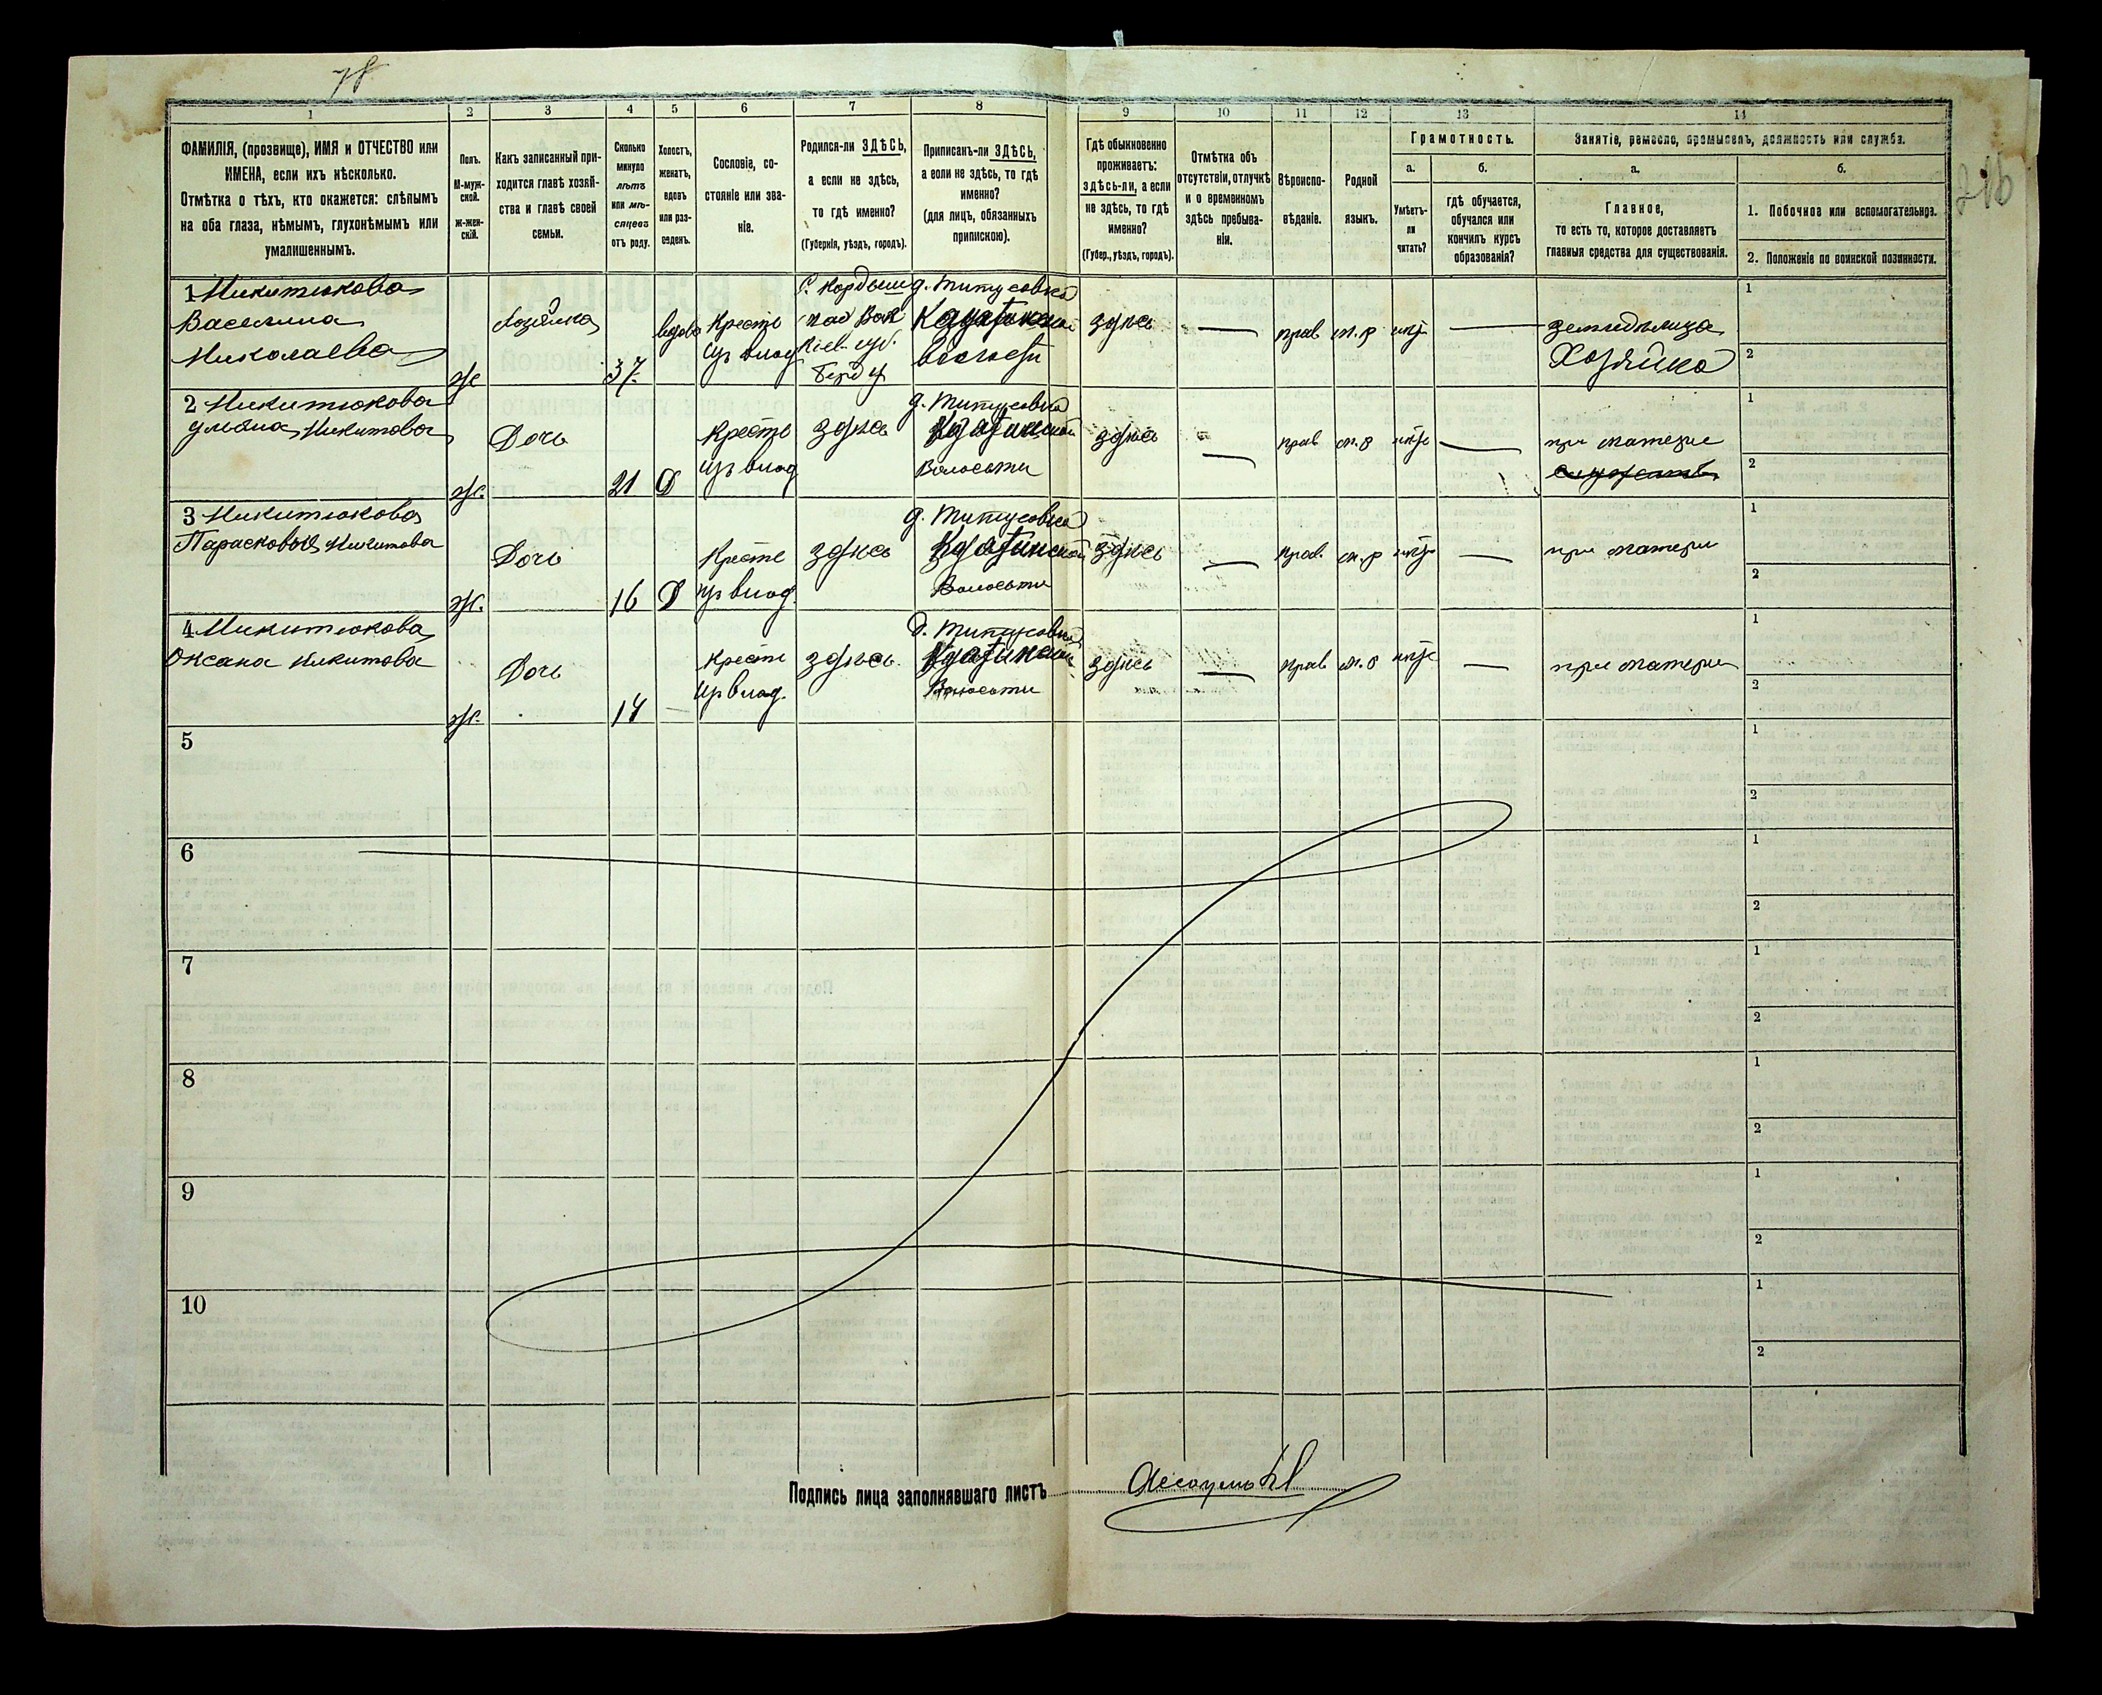 78
216
1 2 3 4 5 6 7 8 9 10 11 12 13 14
ФАМИЛІЯ, (прозвище), ИМЯ и ОТЧЕСТВО или
ИМЕНА, если ихъ нѣсколько.
Отмѣтка о тѣхъ, кто окажется: слѣпымъ
на оба глаза, нѣмымъ, глухонѣмымъ или
умалишеннымъ.
Полъ.
М-муж-
ской.
ж-жен-
скій.
Какъ записанный при-
ходится главѣ хозяй-
ства и главѣ своей
семьи.
Сколько
минуло
лѣтъ
или мѣ-
сяцевъ
отъ роду.
Холостъ,
женатъ,
вдовъ
или раз-
веденъ.
Сословіе, со-
стояніе или зва-
ніе.
Родился-ли ЗДѢСЬ,
а если не здѣсь,
то гдѣ именно?
(Губернія, уѣздъ, городъ).
Приписанъ-ли ЗДѢСЬ,
а если не здѣсь, то гдѣ
именно?
(для лицъ, обязанныхъ
припискою).
Гдѣ обыкновенно
проживаетъ:
здѣсь-ли, а если
не здѣсь, то гдѣ
именно?
(Губер., уѣздъ, городъ).
Отмѣтка объ
отсутствіи, отлучкѣ
и о временномъ
здѣсь пребыва-
ніи.
Вѣроиспо-
вѣданіе.
Родной
языкъ.
Грамотность.
а.
Умѣетъ-
ли
читать?
б.
гдѣ обучается,
обучался или
кончилъ курсъ
образованія?
Занятіе, ремесло, промыселъ, должность или служба.
а.
Главное,
то есть то, которое доставляетъ
главныя средства для существованія.
б.
1. Побочное или вспомогательное.
2. Положеніе по воинской повинности.
1 Никитюкова
Василина
Николаева
ж
Хозяйка
37
вдова
Кресть
из влад
С. Кордыш
Киев. губ.
Берд у
д. Титусовка
Казатинской
волости
здѣсь
—
прав
м.р
нѣт
—
земледѣлица
Хозяйка
1
2
2 Никитюкова
Ульяна Никитова
ж.
Дочь
21
Д
Кресть
из влад
здѣсь
д. Титусовка
Казатинской
Волости
здѣсь
—
прав
м.р
нѣт
—
при матери
1
2
3 Никитюкова
Парасковья Никитова
ж.
Дочь
16
Д
Кресть
из влад.
здѣсь
д. Титусовка
Казатинской
Волости
здѣсь
—
прав.
м.р
нѣт
—
при матери
1
2
4 Никитюкова
Оксана Никитова
ж.
Дочь
14
—
Кресть
из влад.
здѣсь
д. Титусовка
Казатинской
Волости
здѣсь
—
прав
м.р
нѣт
—
при матери
1
2
5
1
2
6
1
2
7
1
2
8
1
2
9
1
2
10
1
2
Подпись лица заполнявшаго листъ